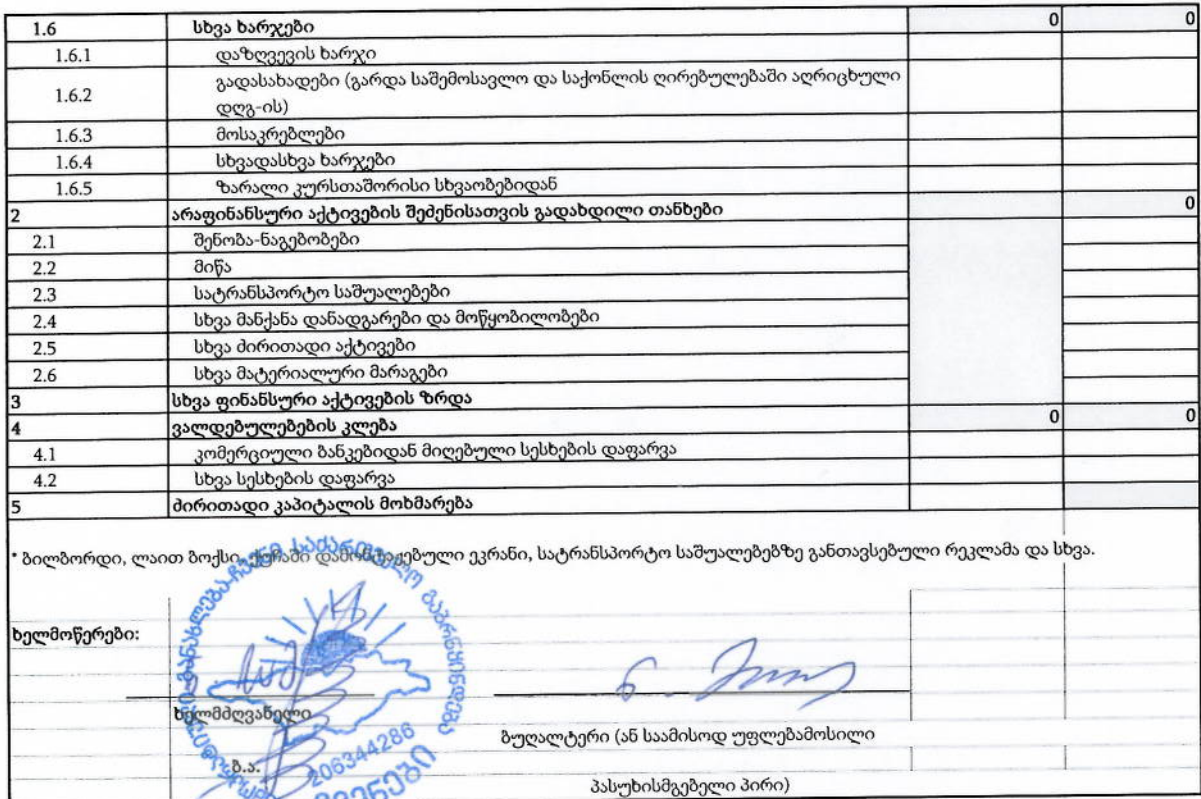 1.6 სხვა ხარჯები 0 0
1.6.1 დაზღვევის ხარჯი
1.6.2 გადასახადები (გარდა საშემოსავლო და საქონლის ღირებულებაში აღრიცხული
დღგ-ის)
1.6.3 მოსაკრებლები
1.6.4 სხვადასხვა ხარჯები
1.6.5 ზარალი კურსთაშორისი სხვაობებიდან
2 არაფინანსური აქტივების შეძენისათვის გადახდილი თანხები 0
2.1 შენობა-ნაგებობები
2.2 მიწა
2.3 სატრანსპორტო საშუალებები
2.4 სხვა მანქანა დანადგარები და მოწყობილობები
2.5 სხვა ძირითადი აქტივები
2.6 სხვა მატერიალური მარაგები
3 სხვა ფინანსური აქტივების ზრდა
4 ვალდებულებების კლება 0 0
4.1 კომერციული ბანკებიდან მიღებული სესხების დაფარვა
4.2 სხვა სესხების დაფარვა
5 ძირითადი კაპიტალის მოხმარება
* ბილბორდი, ლაით ბოქსი, ქუჩაში დამონტაჟებული ეკრანი, სატრანსპორტო საშუალებებზე განთავსებული რეკლამა და სხვა.
ხელმოწერები:
ხელმძღვანელი
ბუღალტერი (ან საამისოდ უფლებამოსილი
ბ.ა.
პასუხისმგებელი პირი)
განახლება-ჩვენი საქართველო გაბრწყინდება
206344286